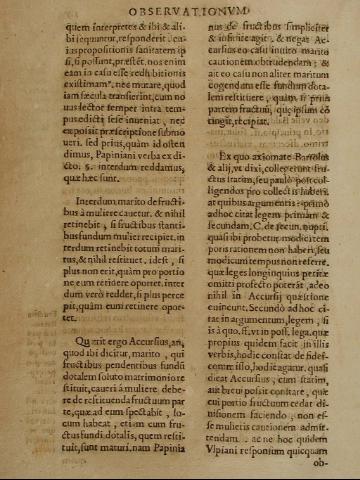 OBSERVATIONVM
quem interpretes & ibi & ali-
bi sequuntur, responderit, ca-
ius propositionis sanitatem ip
si, si possunt, præstēt. nos enim
eam in casu esse redhibitionis
existimam⁹. nec mutare, quod
iam sæcula transierint, cum no
uus lector semper intra tem-
pus edicti sese inueniat, nec
ex possit præscriptione submo
ueri. sed prius, quàm id osten
dimus, Papiniani verba ex di-
cto. §. interdum reddamus,
quæ hæc sunt.
Interdum marito de fructi-
bus à muliere cauetur. & nihil
retinebit, si fructibus stanti-
bus fundum mulier recipit. in
terdum retinebit totum mari-
tus, & nihil restituet. idest, si
plus non erit, quàm pro portio
ne eum retinere oportet. inter
dum verò reddet, si plus perce
pit, quàm eum retinere opor-
tet.
Quærit ergo Accursius, an,
quod ibi dicitur, marito, qui
fructibus pendentibus fundū
dotalem soluto matrimonio re
stituit, caueri à muliere. debe-
re de restituenda fructuum par
te, quæ ad eum spectabit, lo-
cum habeat, etiam cum fru-
ctus fundi dotalis, quem resti-
tuit, sunt maturi. nam Papinia
nus de fructibus simpliciter
& infinitè agit. & negat Ac-
cursius eo casu inuito marito
cautionem obtrudendam; &
ait eo casu non aliter maritum
cogendum esse fundum dota-
lem restituere, quàm si prius
partem fructuū, quę ipsum cō
tingit, recipiat.
Ex quo axiomate Bartolus
& alij, vt dixi, collegerunt fru-
ctus stacim, seu paulò post col-
ligendos pro collectis haberi.
at quibus argumentis? primò
adhoc citat legem primam &
secundam. C. de secun. nupti.
quasi ibi probetur modici tem
poris rationem non haberi, seu
modicum tempus non referre.
quæ leges longinquius petitæ
omitti profecto poterāt, adeo
nihil in Accursij quæstione
euincunt. Secundò ad hoc ci-
tat in argumentum, legem, si
is à quo. ff. vt in poss. lega. quæ
propius quidem facit in illis
verbis, hodie constat de fidei-
commisso, hodie agatur. quasi
dicat Accursius, cum statim,
aut breui possit constare, quæ
cui portio fructuum cedat di-
uisionem faciendo, non es-
se mulieris cautionem admit-
tendam. ac ne hoc quidem
Vlpiani responsum quicquam
ob-